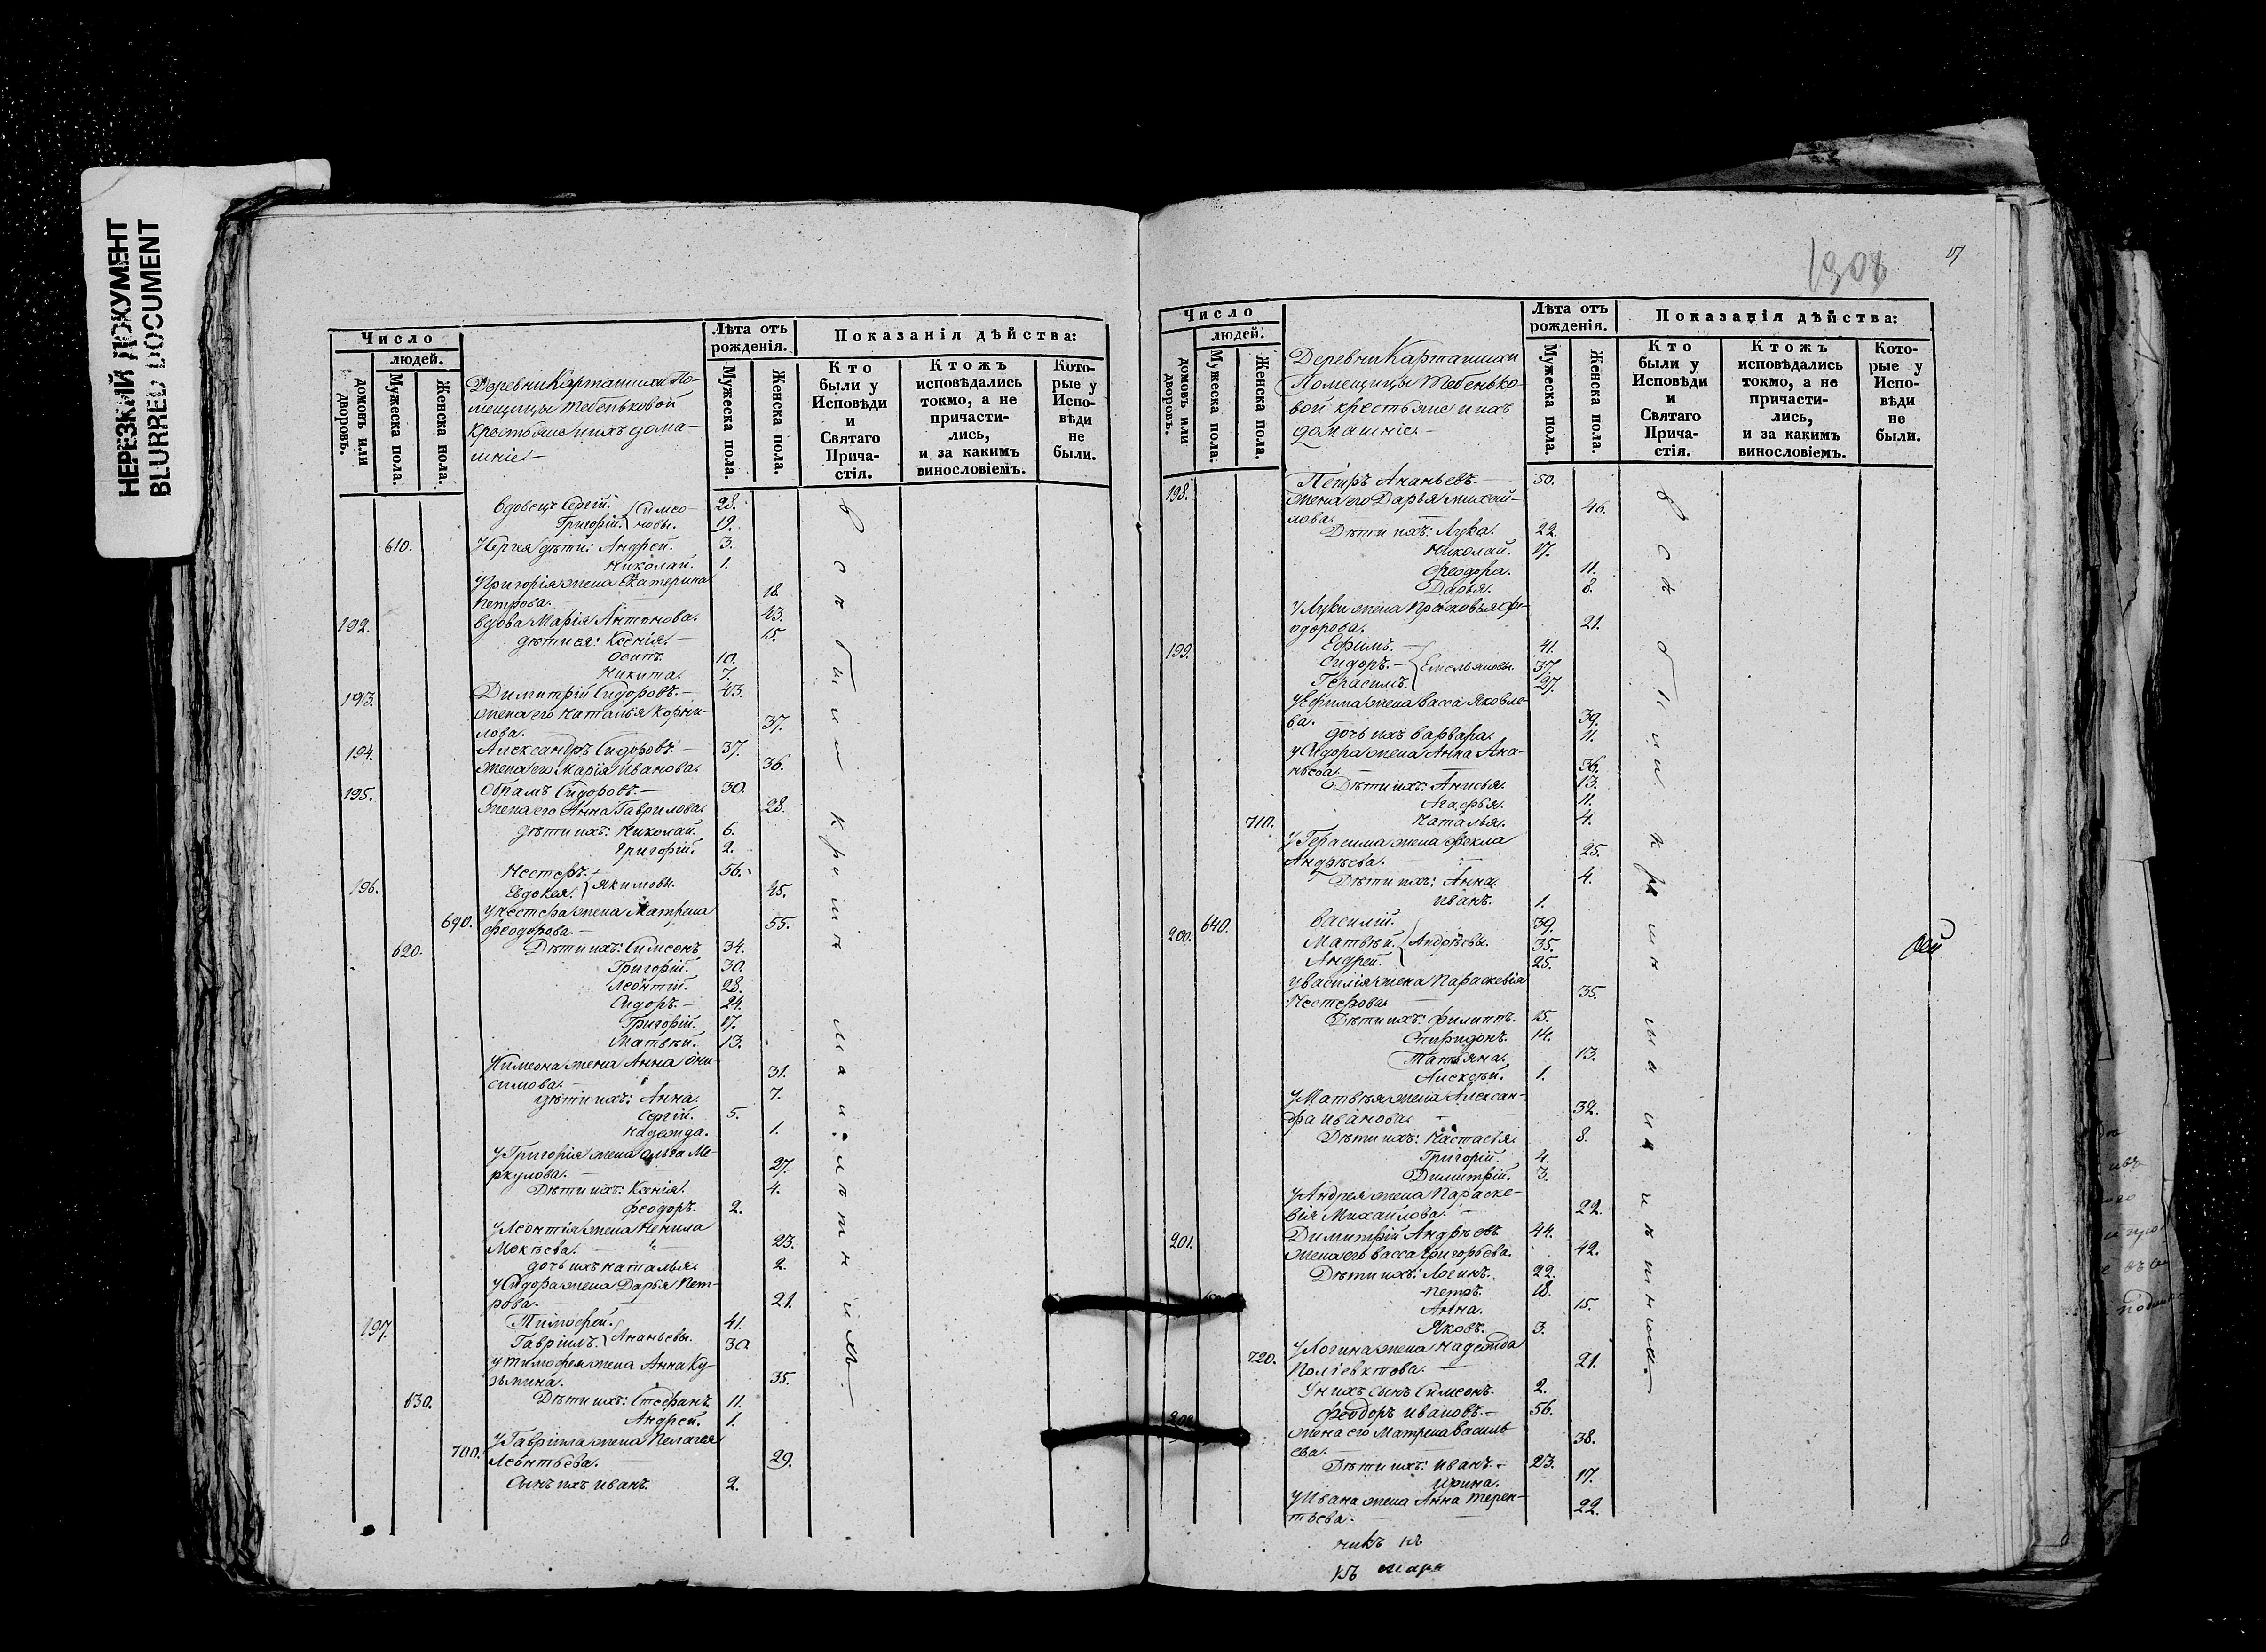 НЕРЕЗКИЙ ДОКУМЕНТ
BLURRED DOCUMENT
Число
людей.
домовъ или дворовъ.
Мужеска пола.
Женска пола.
Деревни Карташихи По-
мещицы Тебеньковой
крестьяне и ихъ дома-
шніе
Лѣта отъ рожденія.
Мужеска пола.
Женска пола.
Показанія дѣйства:
Кто были у Исповѣди и Святаго Прича-стія.
Ктожъ исповѣдались токмо, а не причасти-лись, и за какимъ винословіемъ.
Кото-рые у Испо-вѣди не были.
вдовецъ Сергій. 28.
Григорій. Симео-новы. 19.
610. У Сергея дѣти: Андрей. 3.
Николай. 1.
У Григорія жена Екатерина
Петрова. 18
192. вдова Марія Антонова. 43.
дѣти ея: Ксенія. 15.
Осипъ. 10.
Никита. 7.
193. Димитрій Сидоровъ. 43.
жена его Наталья Корни-
лова. 37.
194. Александръ Сидоровъ. 37.
жена его Марія Иванова. 36.
195. Абрамъ Сидоровъ. 30.
жена его Анна Гаврилова. 28.
дѣти ихъ: Николай. 6.
Григорій. 2.
Нестеръ. 56.
196. Евдокея. Якимовы. 45.
690. У Нестера жена Матрена
Феодорова. 55.
620. Дѣти ихъ: Симеонъ 34.
Григорій. 30.
Леонтій. 28.
Сидоръ. 24.
Григорій. 17.
Матвѣй. 13.
У Симеона жена Анна Они-
симова. 31.
дѣти ихъ: Анна. 7.
Сергій. 5.
Надежда. 1.
У Григорія жена Ольга Ме-
ркулова. 27.
Дѣти ихъ: Ксенія. 4.
Феодоръ. 2.
У Леонтія жена Ненила
Мокѣева. 23.
дочь ихъ Наталья. 2.
У Сидора жена Дарья Пет-
рова. 21.
197. Тимофей. 41.
Гавріилъ. Ананьевы. 30
У Тимофея жена Анна Ку-
зьмина. 35.
630. Дѣти ихъ: Стефанъ. 11.
Андрей. 1.
У Гавріила жена Пелагея
700. Леонтьева. 29.
Сынъ ихъ Иванъ. 2.
всѣ были кромѣ малолѣтнихъ
1308
17
Число
людей.
домовъ или дворовъ.
Мужеска пола.
Женска пола.
Деревни Карташихи
Помещицы Тебенько-
вой крестьяне и ихъ
домашніе
Лѣта отъ рожденія.
Мужеска пола.
Женска пола.
Показанія дѣйства:
Кто были у Исповѣди и Святаго Прича-стія.
Ктожъ исповѣдались токмо, а не причасти-лись, и за какимъ винословіемъ.
Кото-рые у Испо-вѣди не были.
198. Петръ Ананьевъ. 50.
жена его Дарья Михай-
лова. 46.
Дѣти ихъ: Лука. 22.
Николай. 17.
Феодора. 11.
Дарья. 8.
У Луки жена Прасковья Фе-
одорова. 21.
199. Ефимъ. 41.
Сидоръ. Емельяновы. 37.
Герасимъ. 27.
У Ефима жена Васса Яковле-
ва. 39.
дочь ихъ Варвара. 11.
У Сидора жена Анна Ана-
ньева. 36.
Дѣти ихъ: Анисья. 13.
Агафья. 11.
710. Наталья. 4.
У Герасима жена Фекла
Андрѣева. 25.
Дѣти ихъ: Анна. 4.
Иванъ. 1.
640. Василій. 39.
200. Матвѣй. Андрѣевы. 35.
Андрей. 25.
У Василія жена Параскевія
Нестерова. 35.
Дѣти ихъ: Филиппъ. 15.
Спиридонъ. 14.
Татьяна. 13.
Алексѣй. 1.
У Матвѣя жена Алексан-
дра Иванова. 32.
Дѣти ихъ: Настасья. 8.
Григорій. 4.
Димитрій. 3.
У Андрея жена Параске-
вія Михайлова. 22.
201. Димитрій Андрѣевъ. 44.
жена его Васса Григорьева. 42.
Дѣти ихъ: Логинъ. 22.
Петръ. 18.
Анна. 15.
Яковъ. 3.
У Логина жена Надежда
720. Поліевктова. 21.
У нихъ сынъ Симеонъ. 2.
202. Феодоръ Ивановъ. 56.
жена его Матрена Василь
ева. 38.
Дѣти ихъ: Иванъ. 23.
Ирина. 17.
У Ивана жена Анна Терен-
тьева. 22.
всѣ были кромѣ